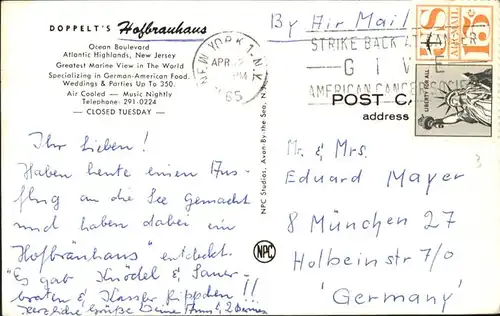 DOPPELT'S Hofbrauhaus
Ocean Boulevard
Atlantic Highlands, New Jersey
Greatest Marine View in The World
Specializing in German-American Food.
Weddings & Parties Up To 350.
Air Cooled — Music Nightly
Telephone: 291-0224
— CLOSED TUESDAY —
Ihr Lieben!
Haben heute einen Aus-
flug an die See gemacht
und haben dabei ein
"Hofbräuhaus" entdeckt.
"Es gab Knödel & Sauer-
braten & Kassler Rippchen!!
Herzliche Grüße
NPC Studios, Avon-By-the-Sea, N.J.
NPC
By Air Mail
NEW YORK 1, N.Y.
APR
PM
1965
STRIKE BACK AT CANCER
GIVE
AMERICAN CANCER SOCIETY
US
AIR MAIL
15c
LIBERTY FOR ALL
POST C
address
Mr. & Mrs.
Eduard Mayer
8 München 27
Holbeinstr 7/0
'Germany'
3